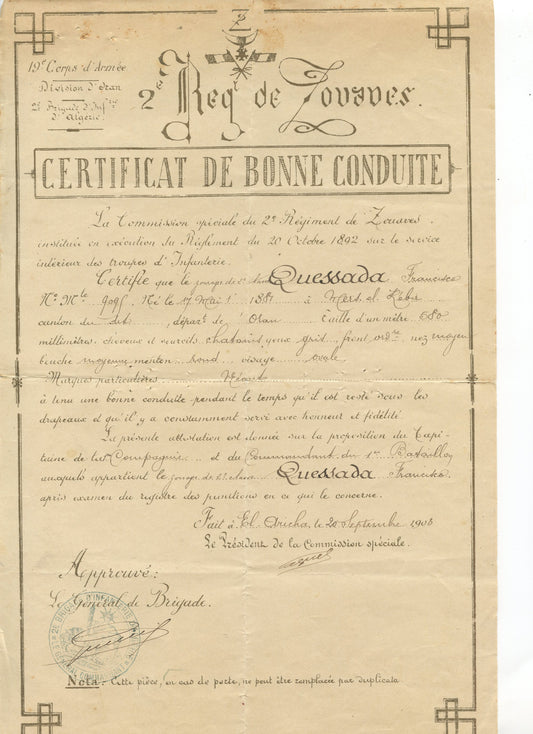 19e Corps d'Armée
Division d'Oran
2e Brigade d'Infrie
d'Algérie
2e Reg t de Zouaves.
CERTIFICAT DE BONNE CONDUITE
La Commission spéciale du 2e Régiment de Zouaves
instituée en exécution du Règlement du 20 Octobre 1892 sur le service
intérieur des troupes d'Infanterie.
Certifie que le Quessada Francisco
No Mle Né le 17 Mai 1881 à Mers el Kébir
canton du dit, départ. de Oran taille d'un mètre 680
millimètres, cheveux et sourcils chatains yeux gris front ordre nez moyen
bouche moyenne menton rond visage ovale
Marques particulières Néant
a tenu une bonne conduite pendant le temps qu'il est resté sous les
drapeaux et qu'il y a constamment servi avec honneur et fidélité.
La présente attestation est donnée sur la proposition du Capi-
taine de la Compagnie et du Commandant du 1er Bataillon
auxquels appartient le Quessada Francisco,
après examen du registre des punitions en ce qui le concerne.
Fait à El Aricha, le 20 Septembre 1903
Le Président de la Commission spéciale.
Approuvé:
Le Général de Brigade.
Nota: Cette pièce, en cas de perte, ne peut être remplacée par duplicata